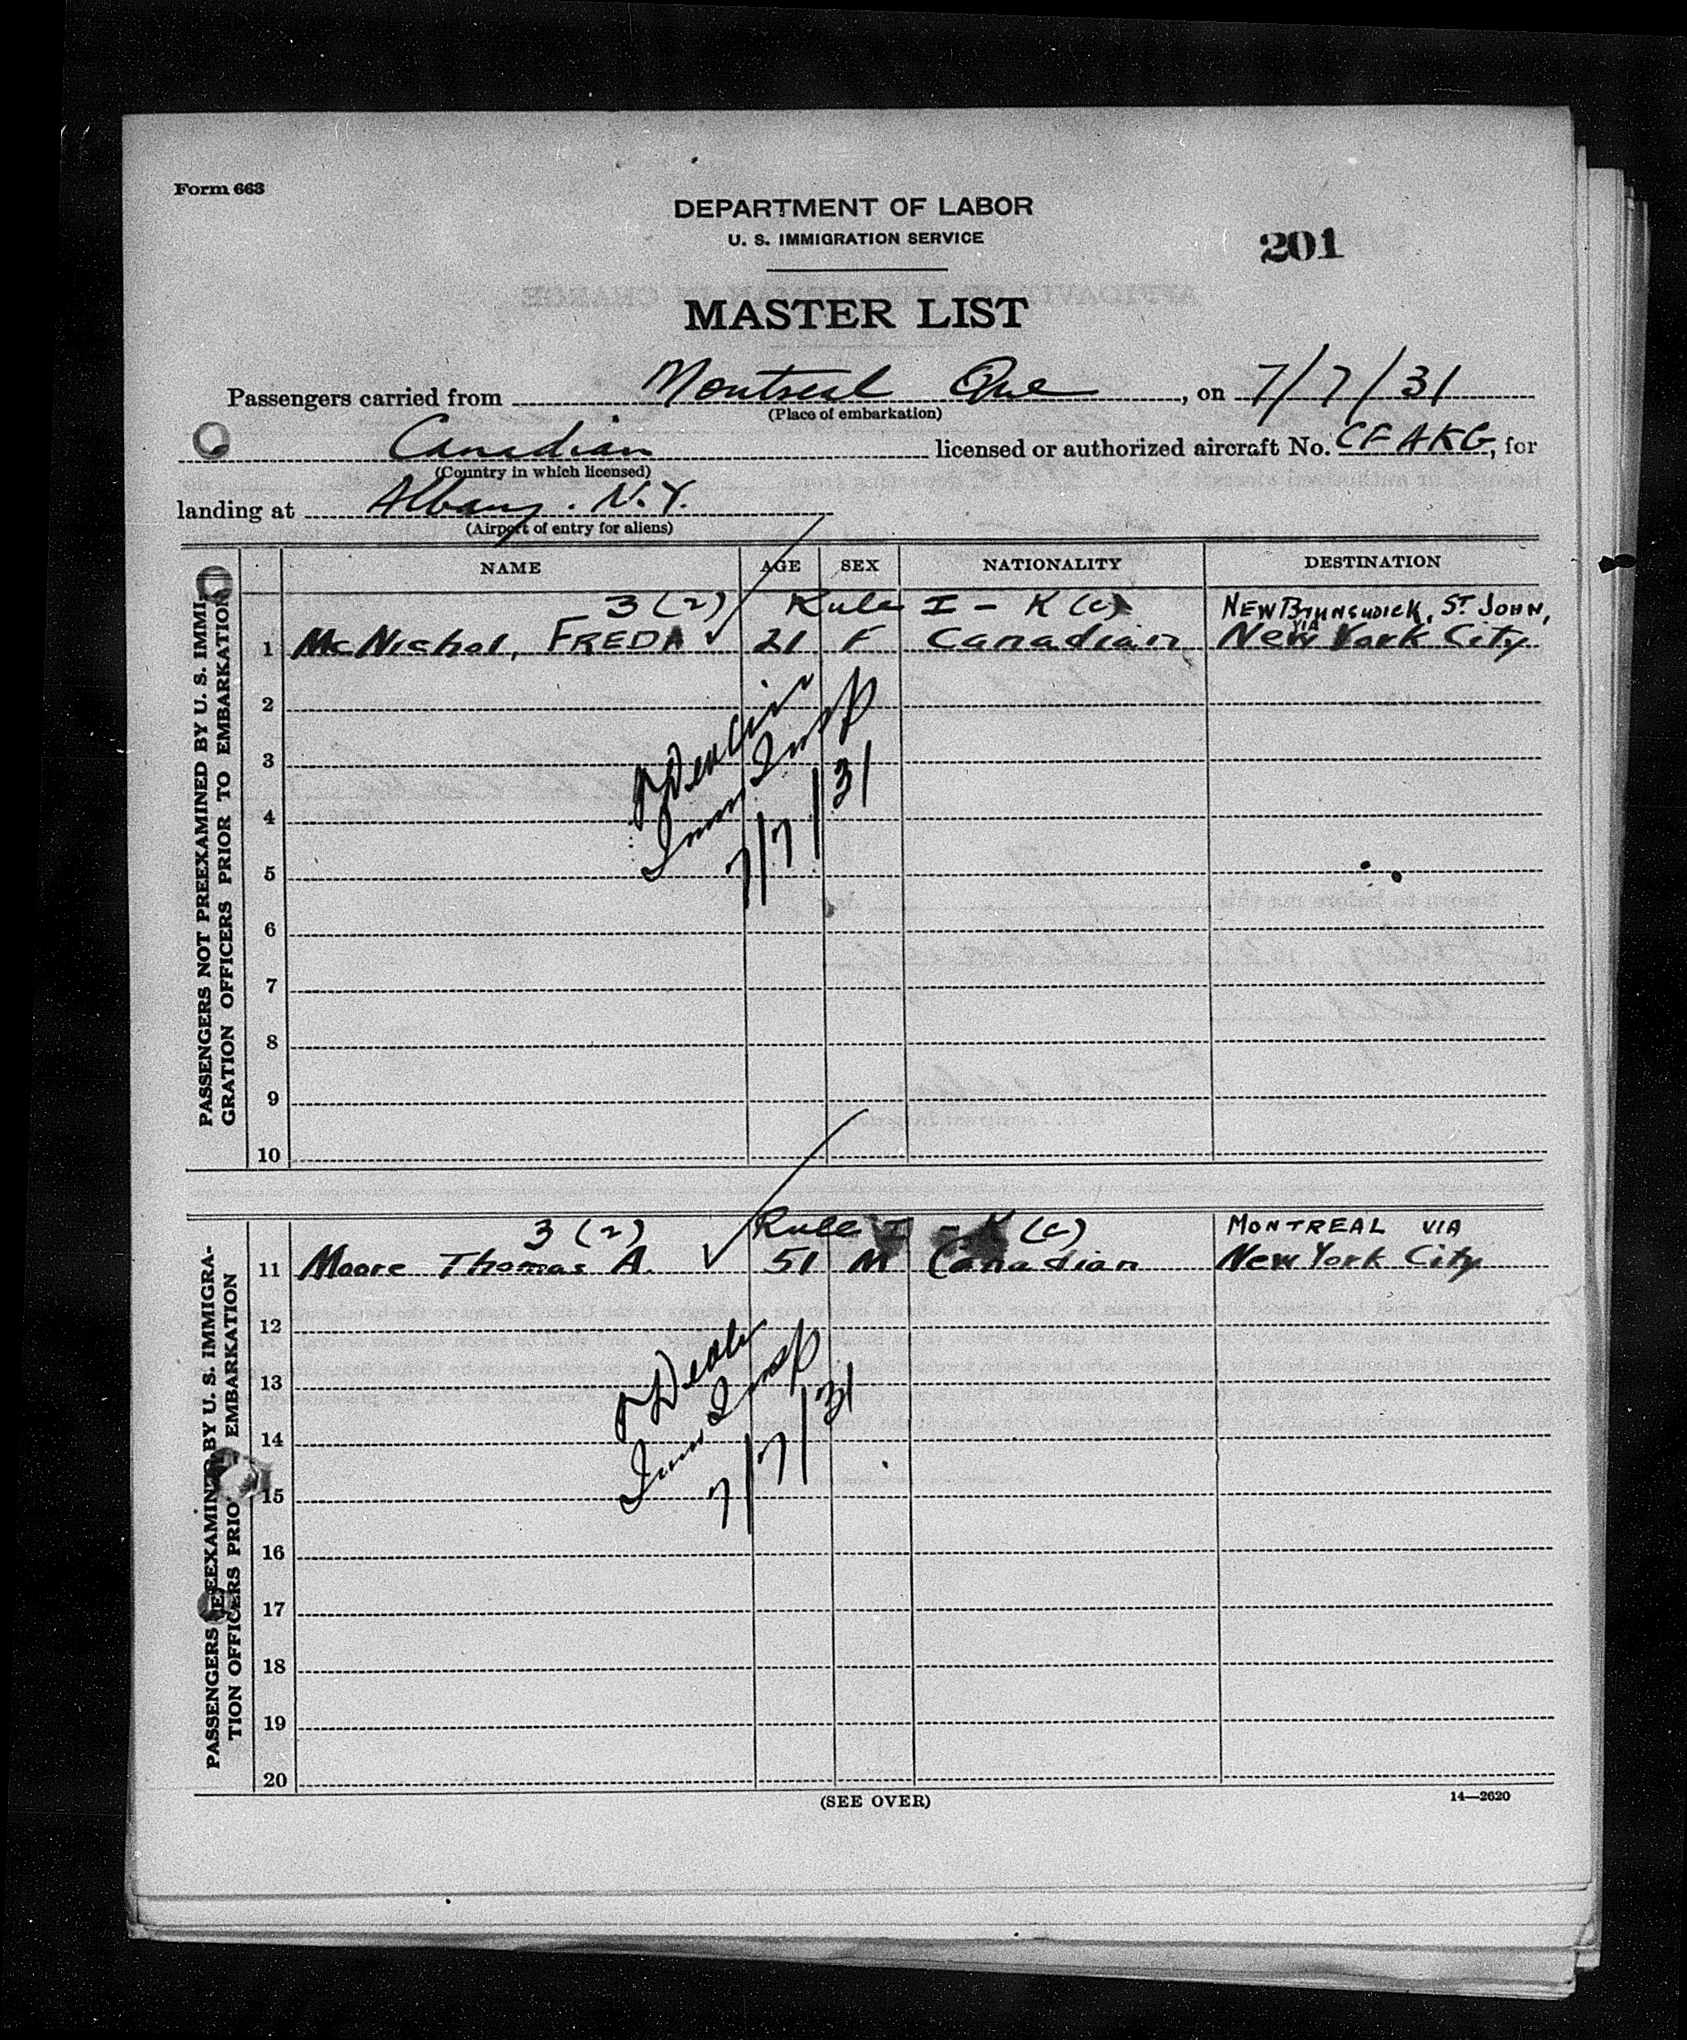 Form 663
DEPARTMENT OF LABOR
U. S. IMMIGRATION SERVICE
201
MASTER LIST
Passengers carried from Montreal Que, on 7/7/31
(Place of embarkation)
Canadian licensed or authorized aircraft No. CF AKG, for
(Country in which licensed)
landing at Albany. N.Y.
(Airport of entry for aliens)
NAME AGE SEX NATIONALITY DESTINATION
PASSENGERS NOT PREEXAMINED BY U. S. IMMI-
GRATION OFFICERS PRIOR TO EMBARKATION
3 (2) Rule I - K (c) NEW BRUNSWICK, ST JOHN,
VIA
1 McNichol, FREDA ✓ 21 F Canadian New York City
2
3
4
5
6
7
8
9
10
Imm Insp
7/7/31
PASSENGERS PREEXAMINED BY U. S. IMMIGRA-
TION OFFICERS PRIOR EMBARKATION
3 (2) Rule I - K (c) MONTREAL VIA
11 Moore Thomas A. ✓ 51 M Canadian New York City
12
13
14
15
16
17
18
19
20
Imm Insp
7/7/31
(SEE OVER)
14—2620